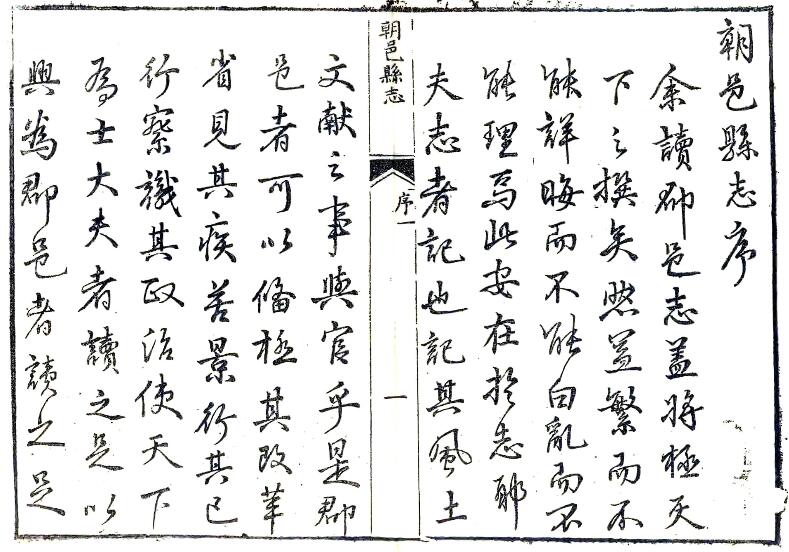 朝邑縣志序
余讀郡邑志蓋將極天
下之撰矣然益繁而不
能詳晦而不能白亂而不
能理焉此安在於志耶
夫志者記也記其風土
朝邑縣志
序
一
文献之事與官乎是郡
邑者可以備極其改革
省見其疾苦景行其已
行察識其政治使天下
為士大夫者讀之足以
興為郡邑者讀之足